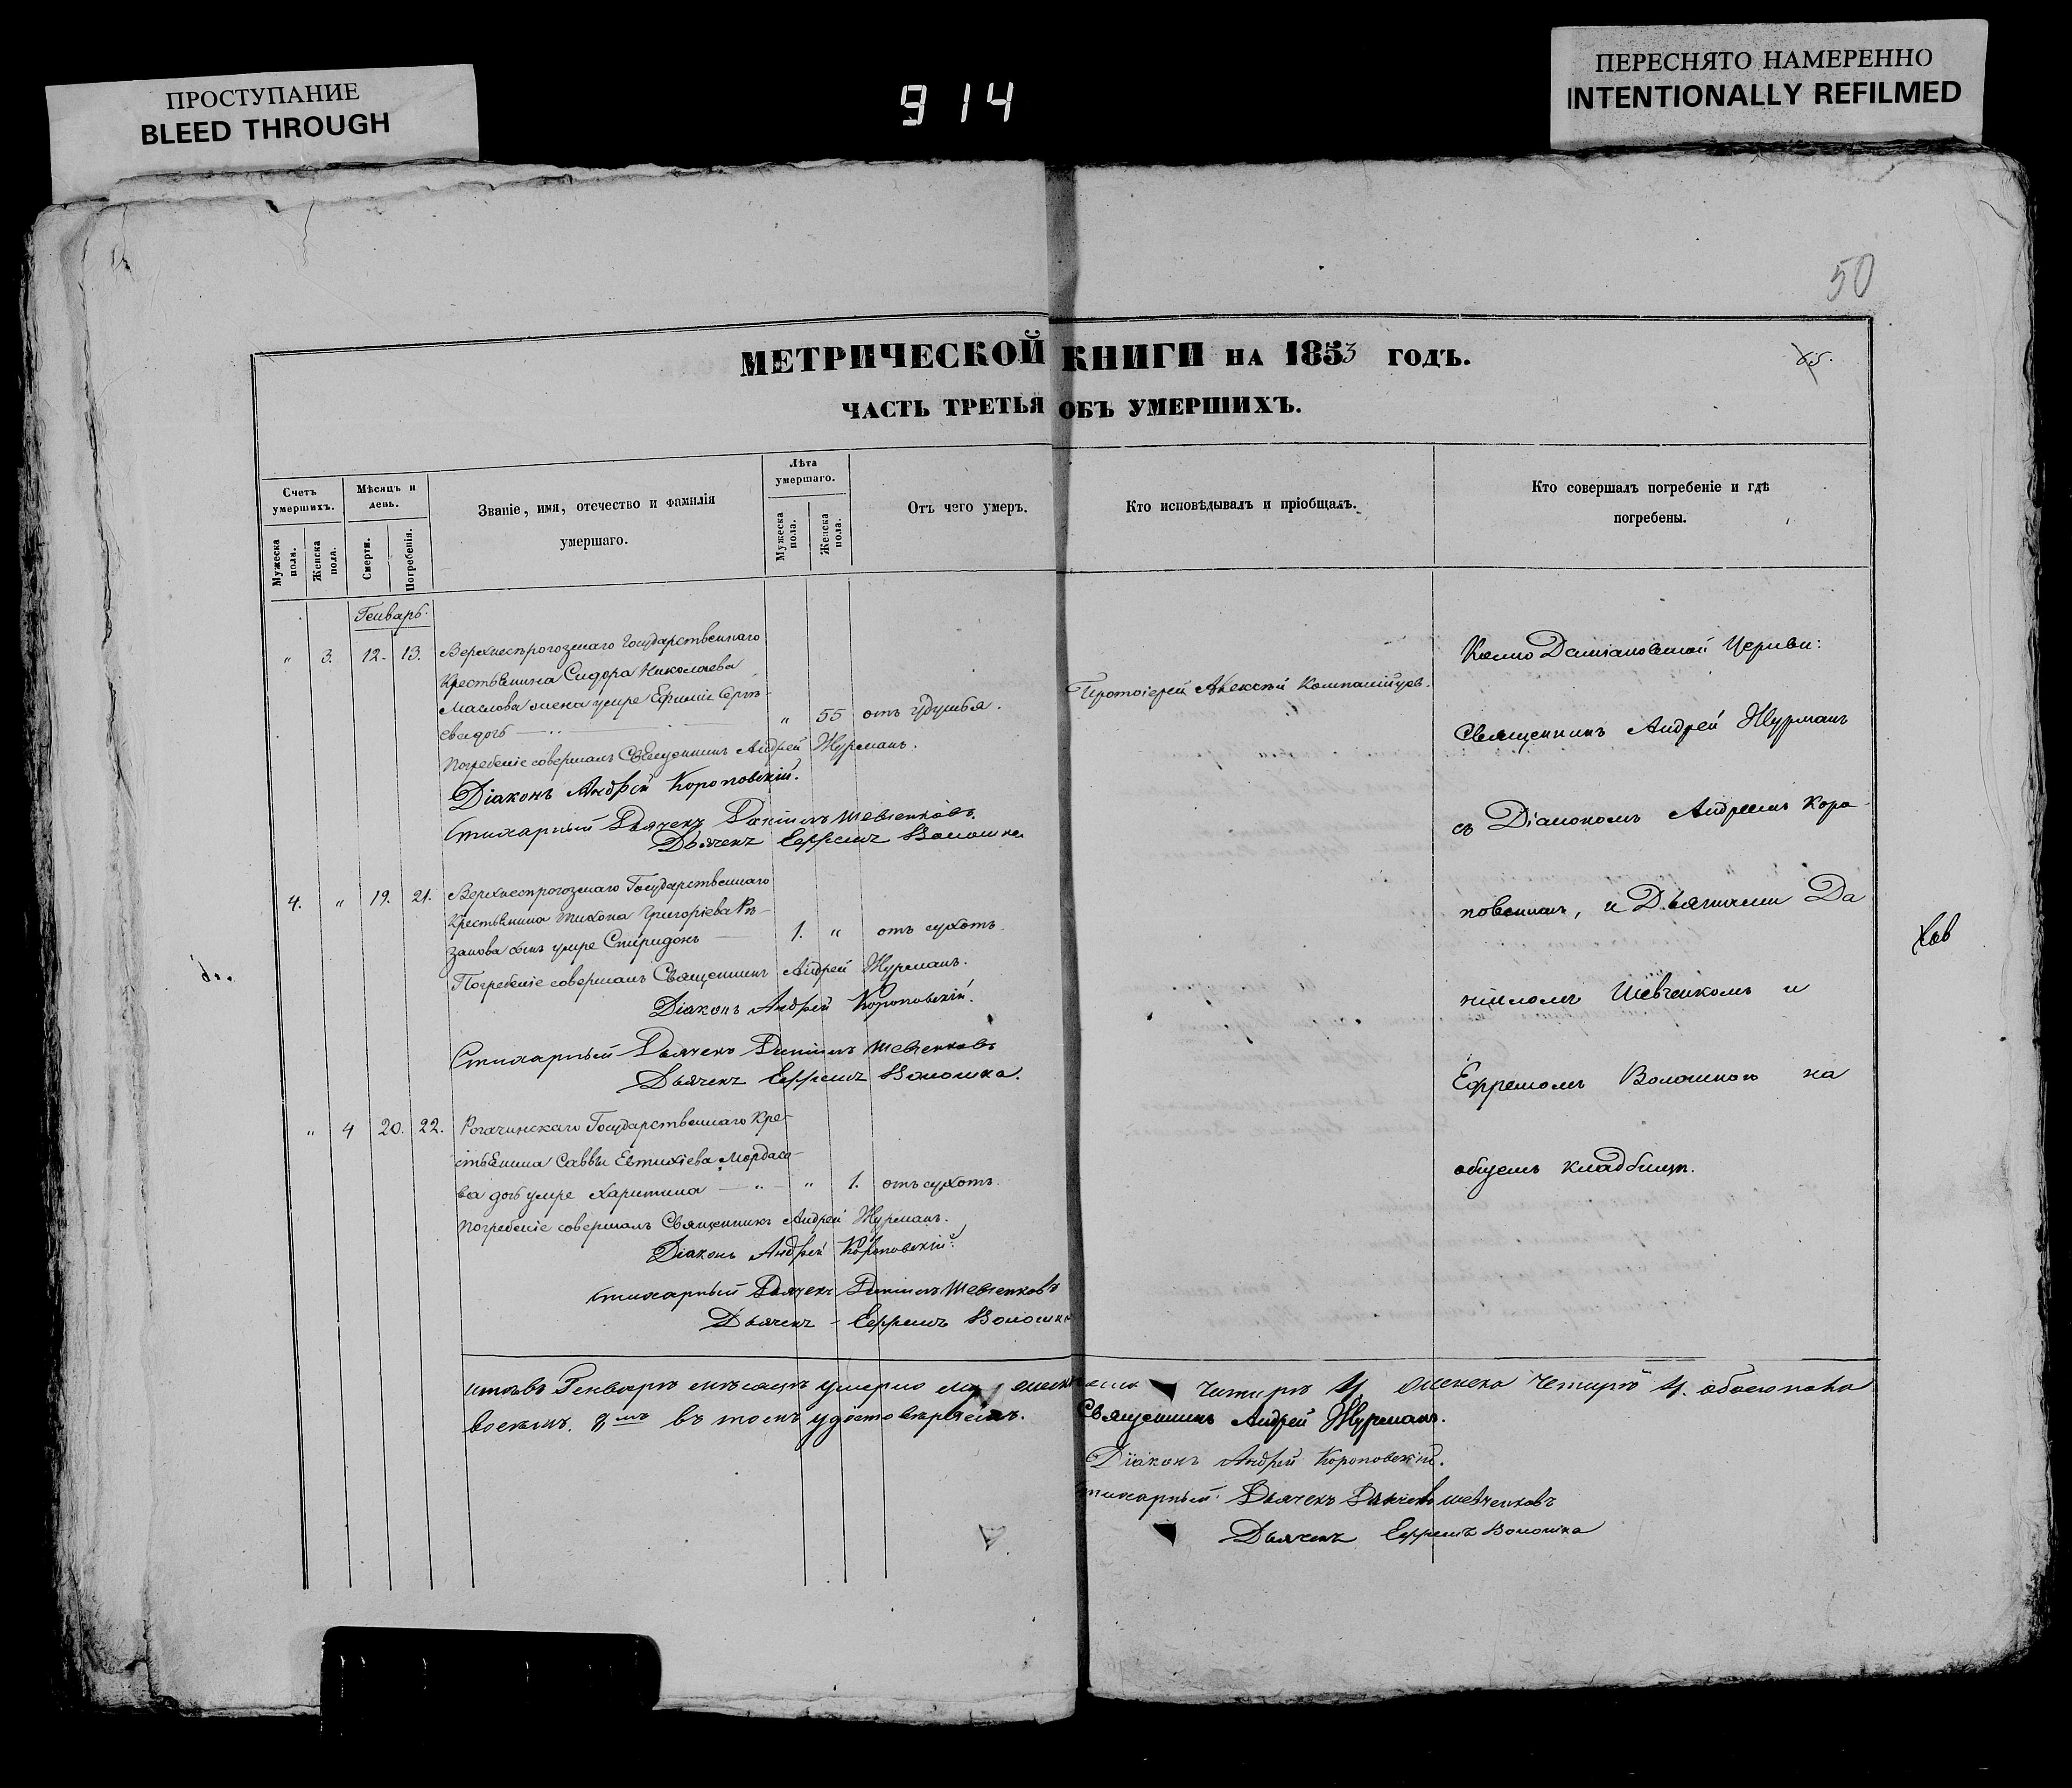 ПРОСТУПАНИЕ
BLEED THROUGH
914
ПЕРЕСНЯТО НАМЕРЕННО
INTENTIONALLY REFILMED
50
МЕТРИЧЕСКОЙ КНИГИ НА 1853 ГОДЪ.
65.
ЧАСТЬ ТРЕТЬЯ ОБЪ УМЕРШИХЪ.
Счетъ умершихъ.
Мужеска пола.
Женска пола.
Мѣсяцъ и день.
Смерти.
Погребенія.
Званіе, имя, отечество и фамилія
умершаго.
Лѣта умершаго.
Мужеска пола.
Женска пола.
Отъ чего умеръ.
Кто исповѣдывалъ и пріобщалъ.
Кто совершалъ погребеніе и гдѣ
погребены.
Генварь.
" 3. 12. 13. Верхнесѣрогозскаго Государственнаго
Крестьянина Сидора Николаева
Маслова жена умре Ефимія Сергѣ-
ева дочь " 55 отъ удушья. Протоіерей Алексѣй Компанійцев.
Погребеніе совершалъ Священникъ Андрей Журманъ.
Діаконъ Андрей Короповскій.
Стихарный Дьячекъ Даніилъ Шевченковъ
Дьячекъ Ефремъ Волошка
4. " 19. 21. Верхнесѣрогозскаго Государственнаго
Крестьянина Тихона Григоріева Рѣ-
занова сынъ умре Спиридонъ 1. " отъ сухотъ.
Погребеніе совершалъ Священникъ Андрей Журманъ.
Діаконъ Андрей Короповскій.
Стихарный Дьячекъ Даніилъ Шевченковъ
Дьячекъ Ефремъ Волошка.
" 4 20. 22. Рогачинскаго Государственнаго Кре-
стьянина Саввы Евтихіева Мордасо-
ва дочь умре Харитина " " 1. отъ сухотъ.
Погребеніе совершалъ Священникъ Андрей Журманъ.
Діаконъ Андрей Короповскій.
Стихарный Дьячекъ Даніилъ Шевченковъ
Дьячекъ Ефремъ Волошка
Козмо Даміановской Церкви:
Священникъ Андрей Журманъ
съ Діакономъ Андреемъ Коро-
повскимъ, и Дьячками Да
ніиломъ Шевченкомъ и
Ефремомъ Волошкою на
общемъ кладбищѣ.
Хов
Итого въ Генварѣ мѣсяцѣ умерло четыре 4, женска четыре 4. обоего пола
восемь. 8мь въ томъ удостовѣряемъ. Священникъ Андрей Журманъ.
Діаконъ Андрей Короповскій.
Стихарный Дьячекъ Даніилъ Шевченковъ
Дьячекъ Ефремъ Волошка